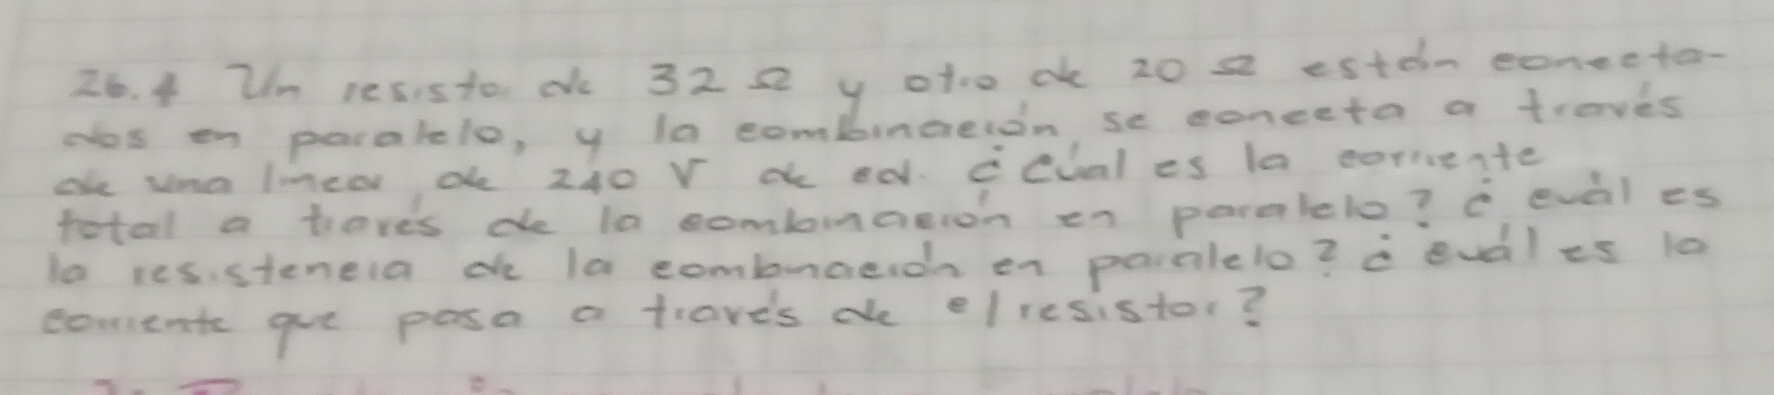 26.4 Un resisto de 32 Ω y otro de 20 Ω están conecta-
dos en paralelo, y la combinación se conecta a través
de una linea de 240 V de cd. ¿Cuál es la corriente
total a través de la combinación en paralelo? ¿cuál es
la resistencia de la combinación en paralelo? ¿cuál es la
corriente que pasa a través de el resistor?